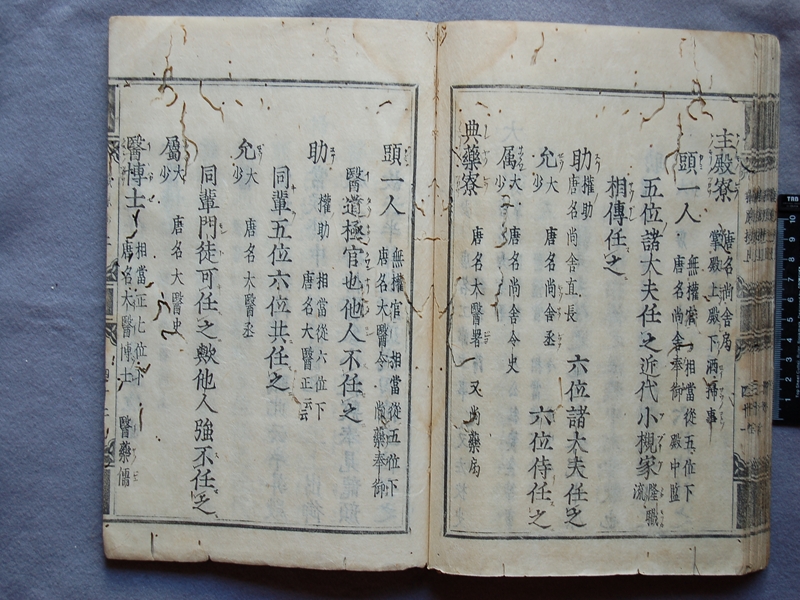 主殿寮 唐名尚舍局 掌殿上殿下洒掃事
頭一人 無權官 相當從五位下 唐名尚舍奉御 殿中監
五位諸大夫任之近代小槻家 隆職流
相傳任之
助 權助 唐名尚舍直長 六位諸大夫任之
允 大少 唐名尚舍丞 六位侍任之
属 大少 唐名尚舍令史
典藥寮 唐名大醫署 又尚藥局
頭一人 無權官 相當從五位下 唐名大醫令 尚藥奉御
醫道極官也他人不任之
助 權助 相當從六位下 唐名大醫正云云
同輩五位六位共任之
允 大少 唐名大醫丞
同輩門徒可任之歟他人強不任之
屬 大少 唐名大醫史
醫博士 相當正七位下 唐名大醫博士 醫藥儒